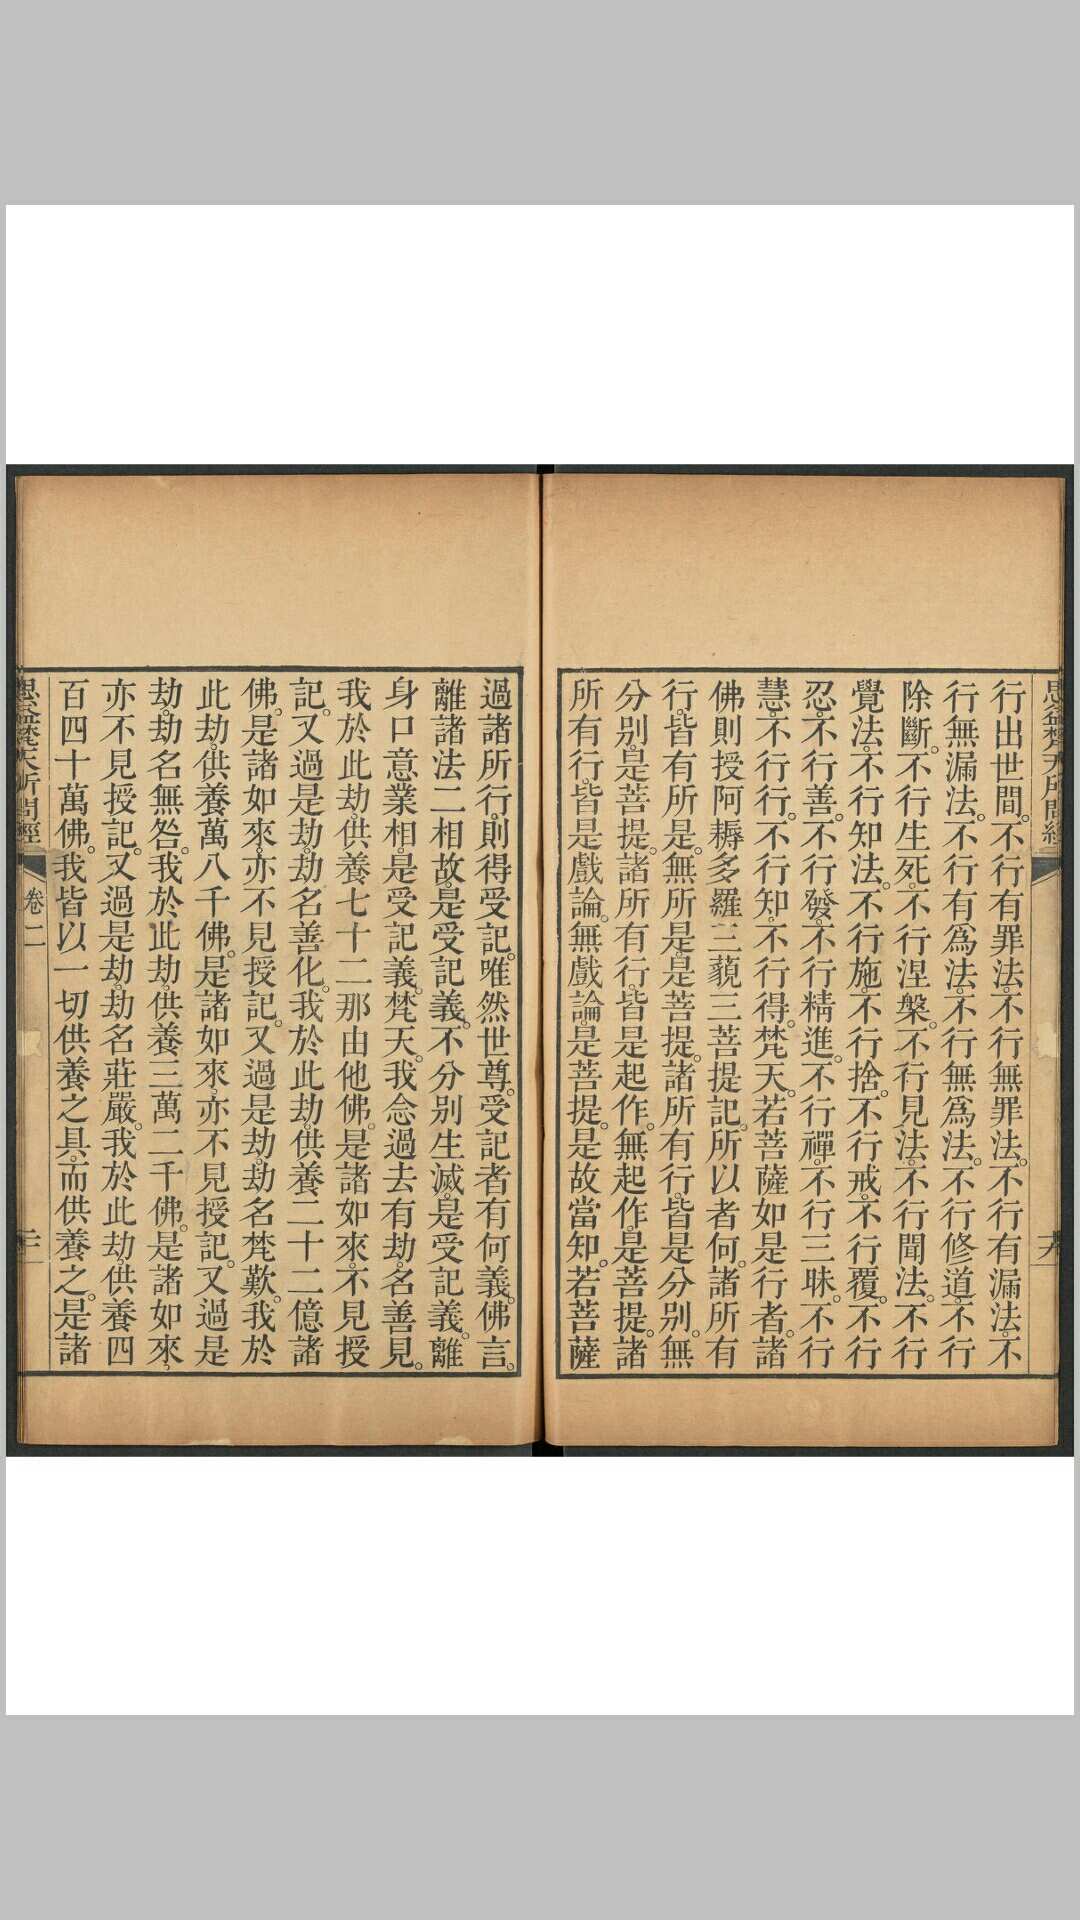 思益梵天所問經
行出世間。不行有罪法。不行無罪法。不行有漏法。不
行無漏法。不行有爲法。不行無爲法。不行修道。不行
除斷。不行生死。不行涅槃。不行見法。不行聞法。不行
覺法。不行知法。不行施。不行捨。不行戒。不行覆。不行
忍。不行善。不行發。不行精進。不行禪。不行三昧。不行
慧。不行行。不行知。不行得。梵天。若菩薩如是行者。諸
佛則授阿耨多羅三藐三菩提記。所以者何。諸所有
行。皆有所是。無所是。是菩提。諸所有行。皆是分别。無
分别。是菩提。諸所有行。皆是起作。無起作。是菩提。諸
所有行。皆是戲論。無戲論。是菩提。是故當知。若菩薩
過諸所行。則得受記。唯然世尊。受記者有何義。佛言。
離諸法二相故。是受記義。不分别生滅。是受記義。離
身口意業相。是受記義。梵天。我念過去有劫。名善見。
我於此劫。供養七十二那由他佛。是諸如來。不見授
記。又過是劫。劫名善化。我於此劫。供養二十二億諸
佛。是諸如來。亦不見授記。又過是劫。劫名梵歎。我於
此劫。供養萬八千佛。是諸如來。亦不見授記。又過是
劫。劫名無咎。我於此劫。供養三萬二千佛。是諸如來。
亦不見授記。又過是劫。劫名莊嚴。我於此劫。供養四
百四十萬佛。我皆以一切供養之具。而供養之。是諸
思益梵天所問經
卷二